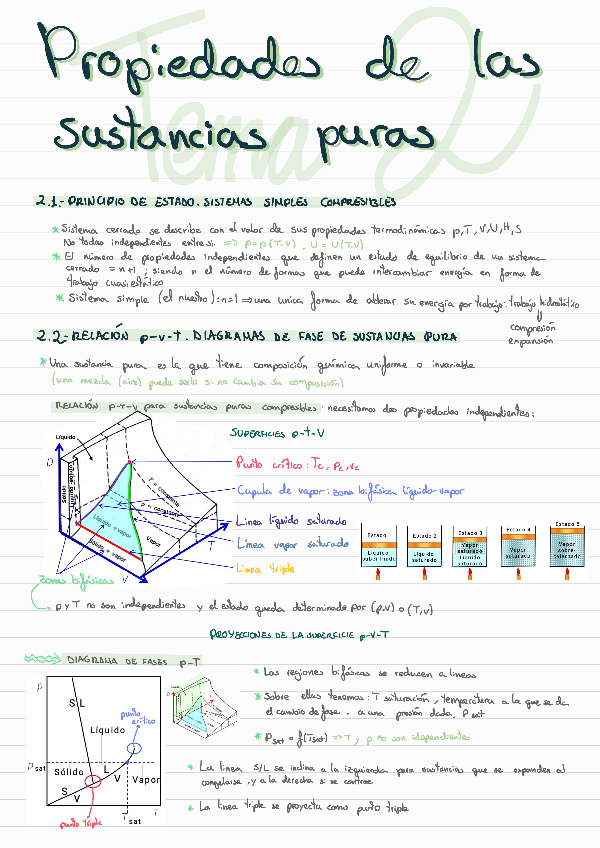 Tema 2
Propiedades de las
sustancias puras
2.1.- PRINCIPIO DE ESTADO. SISTEMAS SIMPLES COMPRESIBLES
* Sistema cerrado se describe con el valor de sus propiedades termodinámicas p,T,V,U,H,S
No todas independientes entre si. => p=p(T,V) , U=U(T,V)
* El número de propiedades independientes que definen un estado de equilibrio de un sistema
cerrado = n+1 ; siendo n el número de formas que puede intercambiar energía en forma de
trabajo cuasiestático
* Sistema simple (el nuestro): n=1 => una unica forma de alterar su energía por trabajo: trabajo hidrostático
compresión
expansión
2.2.- RELACIÓN p-v-T. DIAGRAMAS DE FASE DE SUSTANCIAS PURA
* Una sustancia pura es la que tiene composición química uniforme o invariable
(una mezcla (aire) puede serlo si no cambia su composición)
RELACIÓN p-t-v para sustancias puras compresibles: necesitamos dos propiedades independientes:
SUPERFICIES p-t-v
Líquido
P
Sólido
Líquido + vapor
Sólido + vapor
Vapor
T = constante
p = constante
T
V
Punto crítico: Tc, pc, vc
Cupula de vapor: zona bifásica líquido-vapor
Linea líquido saturado
Linea vapor saturado
Linea triple
Estado 1
Líquido
subenfriado
Estado 2
Líquido
saturado
Estado 3
Vapor
saturado
Líquido
saturado
Estado 4
Vapor
saturado
Estado 5
Vapor
sobre-
calentado
zonas bifásicas
p y T no son independientes y el estado queda determinado por (p,v) o (T,v)
PROYECCIONES DE LA SUPERFICIE p-v-T
DIAGRAMA DE FASES p-T
p
S L
Líquido
punto
crítico
p sat
Sólido
L
V
Vapor
S
V
T
T sat
punto triple
* Las regiones bifásicas se reducen a lineas
* Sobre ellas tenemos: T saturación, temperatura a la que se da
el cambio de fase, a una presión dada, P sat
* P sat = f(Tsat) => T y p no son idependientes
* La linea S/L se inclina a la izquierda para sustancias que se expanden al
congelarse, y a la derecha si se contrae
* La linea triple se proyecta como punto triple